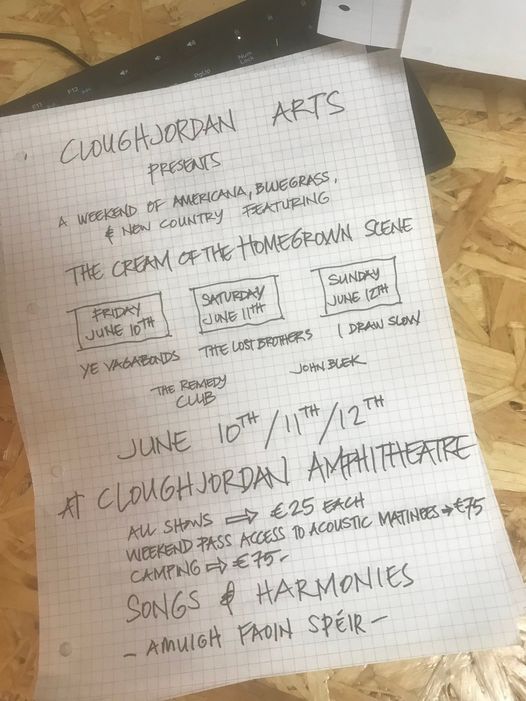 CLOUGHJORDAN ARTS
PRESENTS
A WEEKEND OF AMERICANA, BLUEGRASS,
& NEW COUNTRY FEATURING
THE CREAM OF THE HOMEGROWN SCENE
FRIDAY
JUNE 10TH
SATURDAY
JUNE 11TH
SUNDAY
JUNE 12TH
YE VAGABONDS
THE LOST BROTHERS
I DRAW SLOW
THE REMEDY
CLUB
JOHN BLEK
JUNE 10TH/11TH/12TH
AT CLOUGHJORDAN AMPHITHEATRE
ALL SHOWS ⇒ €25 EACH
WEEKEND PASS ACCESS TO ACOUSTIC MATINEES → €75
CAMPING ⇒ €75-
SONGS & HARMONIES
- AMUIGH FAOIN SPÉIR -
F11
F12
PgUp
Num
Lock